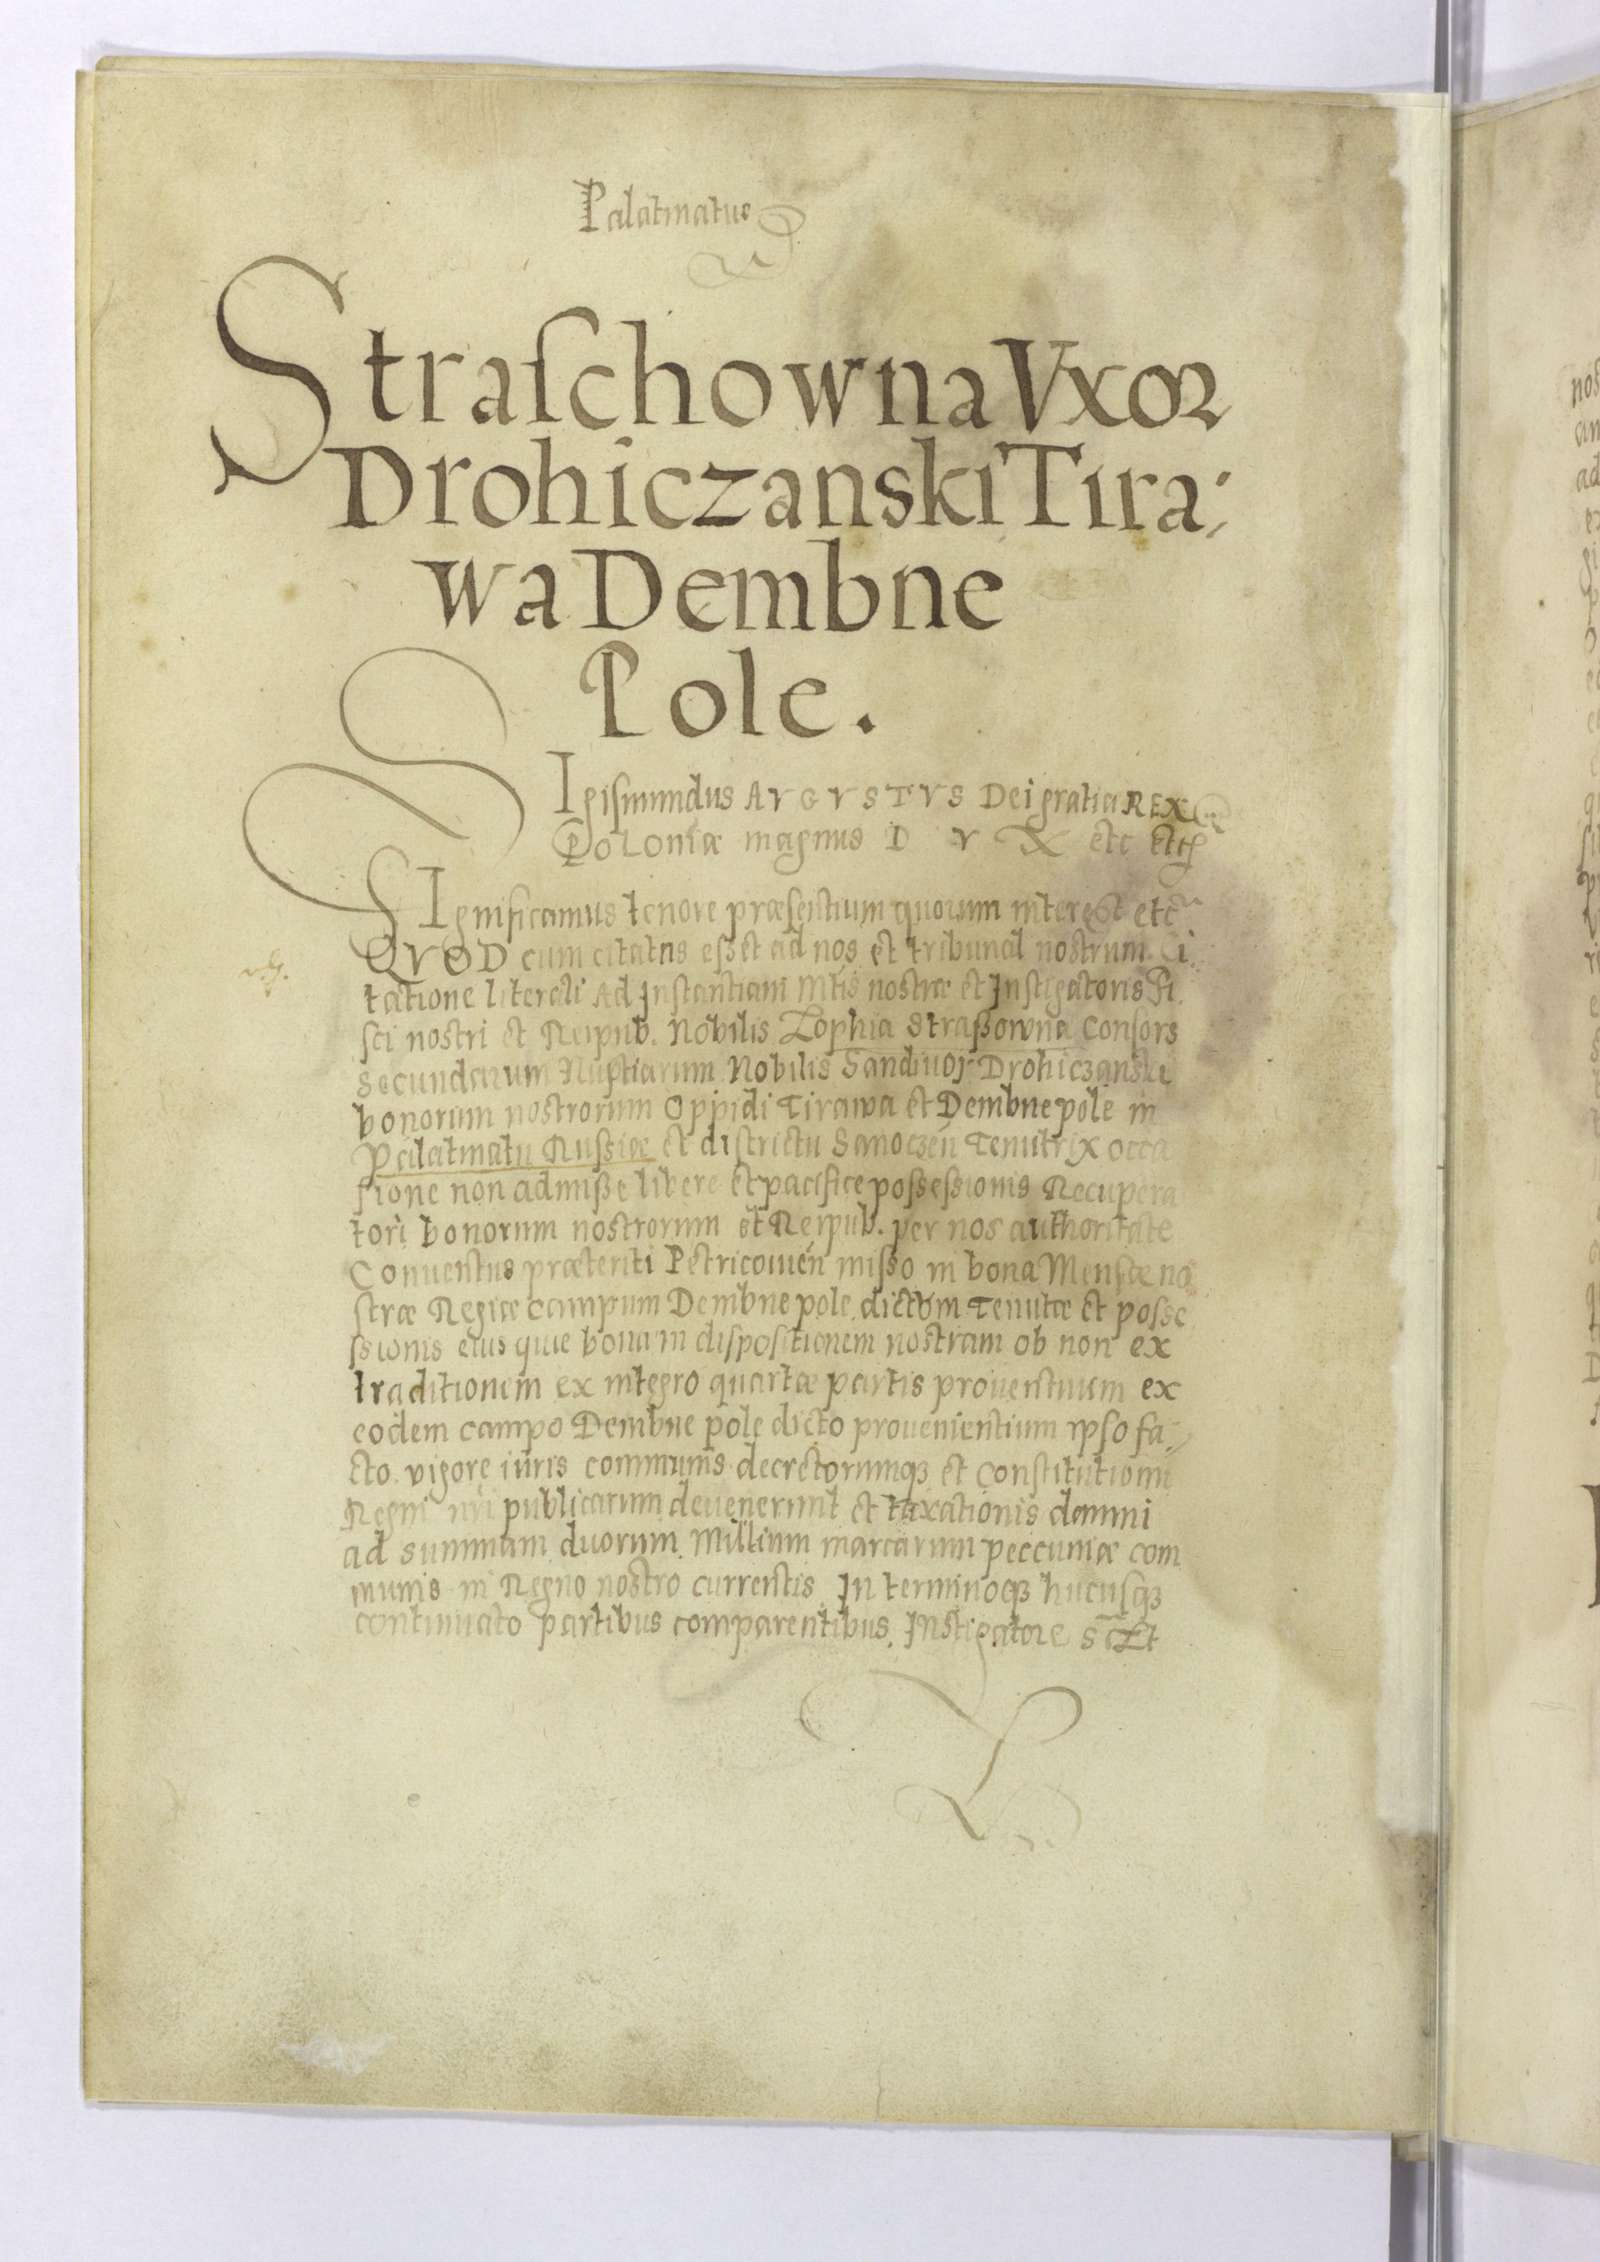 Palatinatus
Straſchowna Vxor
Drohiczanski Tira⸗
wa Dembne
Pole.
SIgiſmundus AVGVSTVS Dei gratia REX
Poloniæ magnus DVX etc etc
SIgnificamus tenore præsentium quorum interest etc
QVOD cum citatus eßet ad nos et tribunal nostrum Ci
tatione literali Ad Instantiam Mtis nostræ et Instigatoris Fi
sci nostri et Reipub. Nobilis Zophia Straßowna Consors
secundarum Nuptiarum Nobilis Sandiuoj Drohiczanski
bonorum nostrorum Oppidi Tirawa et Dembnepole in
Palatinatu Russiæ et districtu Sanoczen Tenutrix occa
sione non admißæ libere et pacifice possessionis Recupera
tori bonorum nostrorum et Reipub. per nos authoritate
Conuentus præteriti Petricouien misso in bona Mensæ no
stræ Regiæ campum Dembne pole dictum Tenutæ et posse
ssionis eius quæ bona in dispositionem nostram ob non ex
traditionem ex integro quartæ partis prouentuum ex
eodem campo Dembne pole dicto prouenientium ipso fa⸗
cto vigore iuris communis decretorumqȝ et Constitutionu
Regni nri publicarum deuenerunt et taxationis damni
ad summam duorum Millium marcarum peccuniæ com
munis in Regno nostro currentis. In terminoqȝ hucusqȝ
continuato partibus comparentibus. Instigatore sct Et